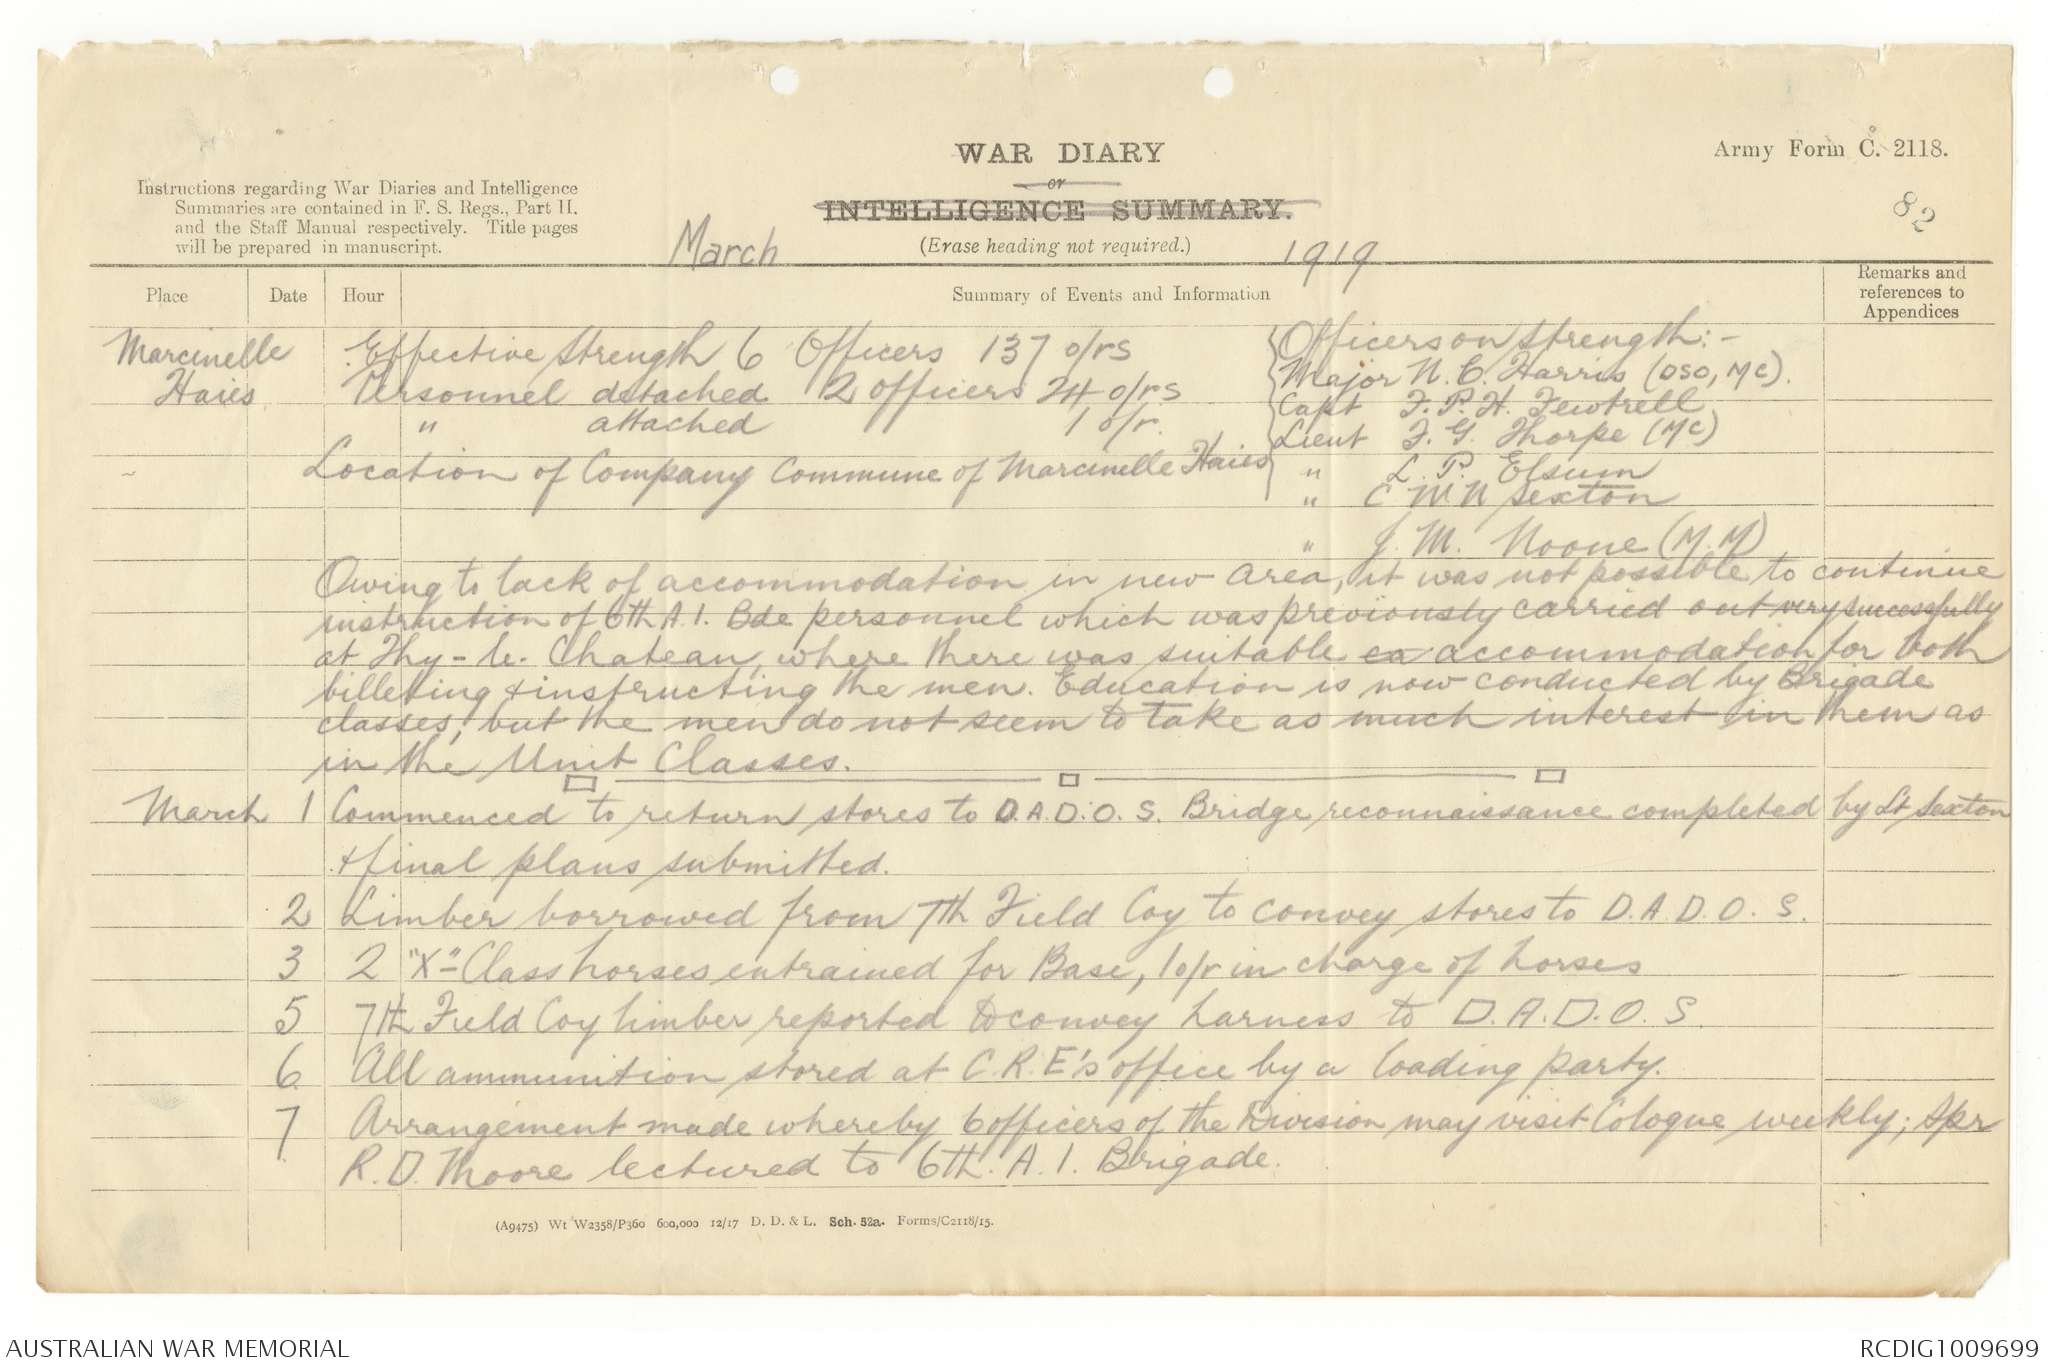 WAR DIARY
or
INTELLIGENCE SUMMARY.
(Erase heading not required.)
Army Form C. 2118.
82
Instructions regarding War Diaries and Intelligence
Summaries are contained in F. S. Regs., Part II.
and the Staff Manual respectively. Title pages
will be prepared in manuscript.
March 1919
Place Date Hour Summary of Events and Information Remarks and references to Appendices
Marcinelle Effective Strength 6 Officers 137 o/rs Officers on Strength:-
Haies Personnel detached 2 officers 24 o/rs Major N. C. Harris (DSO, MC).
" attached 1 o/r. Capt F. P. H. Fewtrell
Lieut F. G. Thorpe (MC)
Location of Company Commune of Marcinelle Haies " L. P. Elsum
" C W N Sexton
" J. M. Noone (M.M)
Owing to lack of accommodation in new area, it was not possible to continue
instruction of 6th A.I. Bde personnel which was previously carried out very successfully
at Thy-le-Chateau, where there was suitable ca accommodation for both
billeting & instructing the men. Education is now conducted by Brigade
classes, but the men do not seem to take as much interest in them as
in the Unit Classes.
March 1 Commenced to return stores to D.A.D.O.S. Bridge reconnaissance completed by Lt Sexton
& final plans submitted.
2 Limber borrowed from 7th Field Coy to convey stores to D.A.D.O.S.
3 2 "X" Class horses entrained for Base, 1 o/r in charge of horses
5 7th Field Coy limber reported to convey harness to D.A.D.O.S.
6 All ammunition stored at C.R.E's office by a loading party.
7 Arrangement made whereby 6 officers of the Division may visit Cologne weekly; Spr
R. D. Moore lectured to 6th. A. I. Brigade.
(A9475) Wt W2358/P360 600,000 12/17 D. D. & L. Sch. 52a. Forms/C2118/15.
AUSTRALIAN WAR MEMORIAL
RCDIG1009699